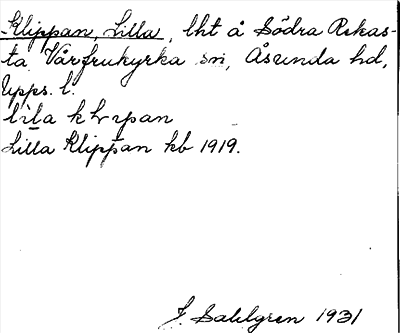 Klippan, Lilla, lht å Södra Rekas-
ta Vårfrukyrka sn, Åsunda hd,
Upps. l.
lila
Lilla Klippan kb 1919.
J. Sahlgren 1931